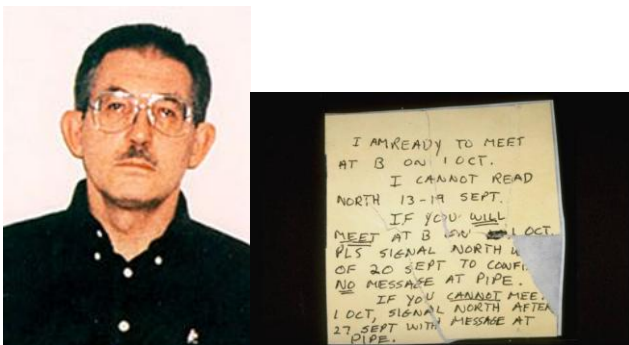 I AM READY TO MEET
AT B ON 1 OCT.
I CANNOT READ
NORTH 13-19 SEPT.
IF YOU WILL
MEET AT B ON 1 OCT.
PLS SIGNAL NORTH
OF 20 SEPT TO
NO MESSAGE AT PIPE.
IF YOU CANNOT MEET
1 OCT, SIGNAL NORTH AFTER
27 SEPT WITH MESSAGE AT
PIPE.